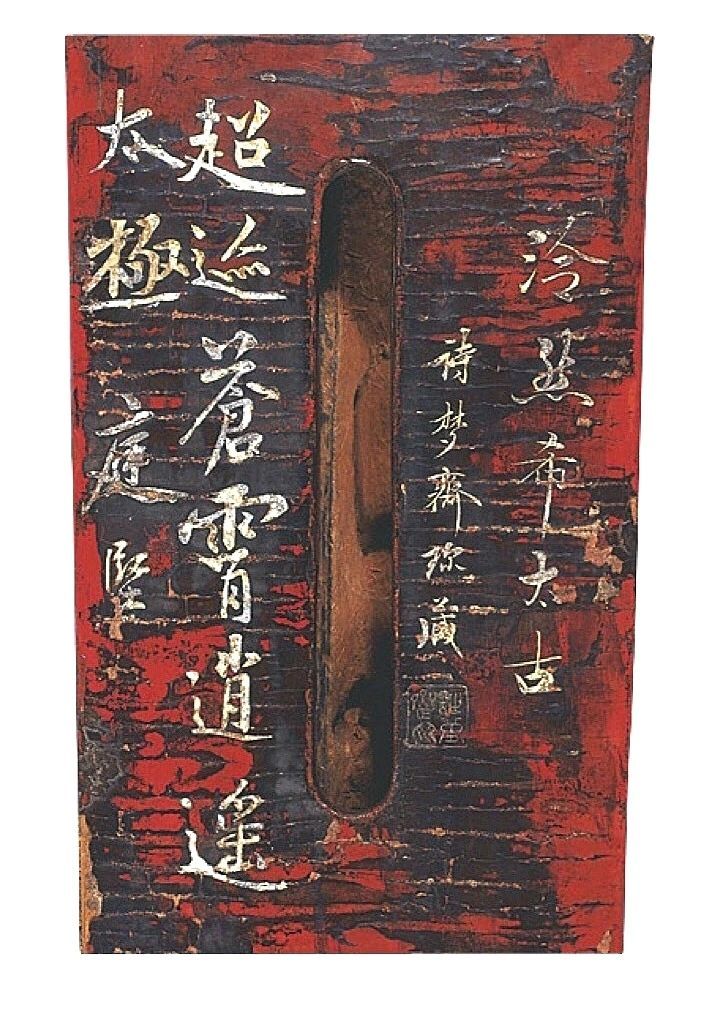 泠然希太古
詩梦齋珍藏
超迹蒼霄逍遥
太極
庭堅